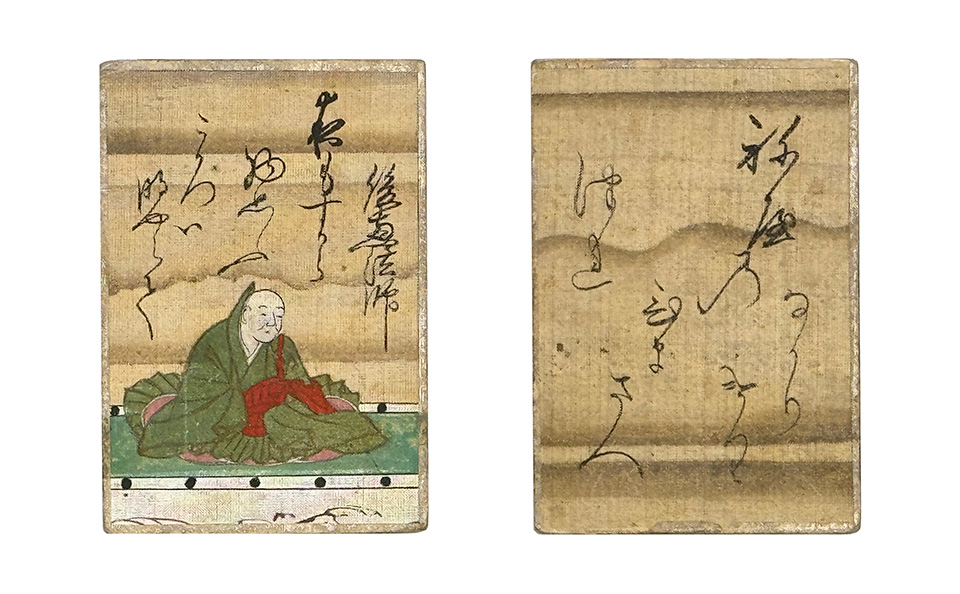 俊恵法師
夜もすから
物思ふ
ころハ
明やらて
祢屋乃
ひま
さへ
津連
なかり
けり